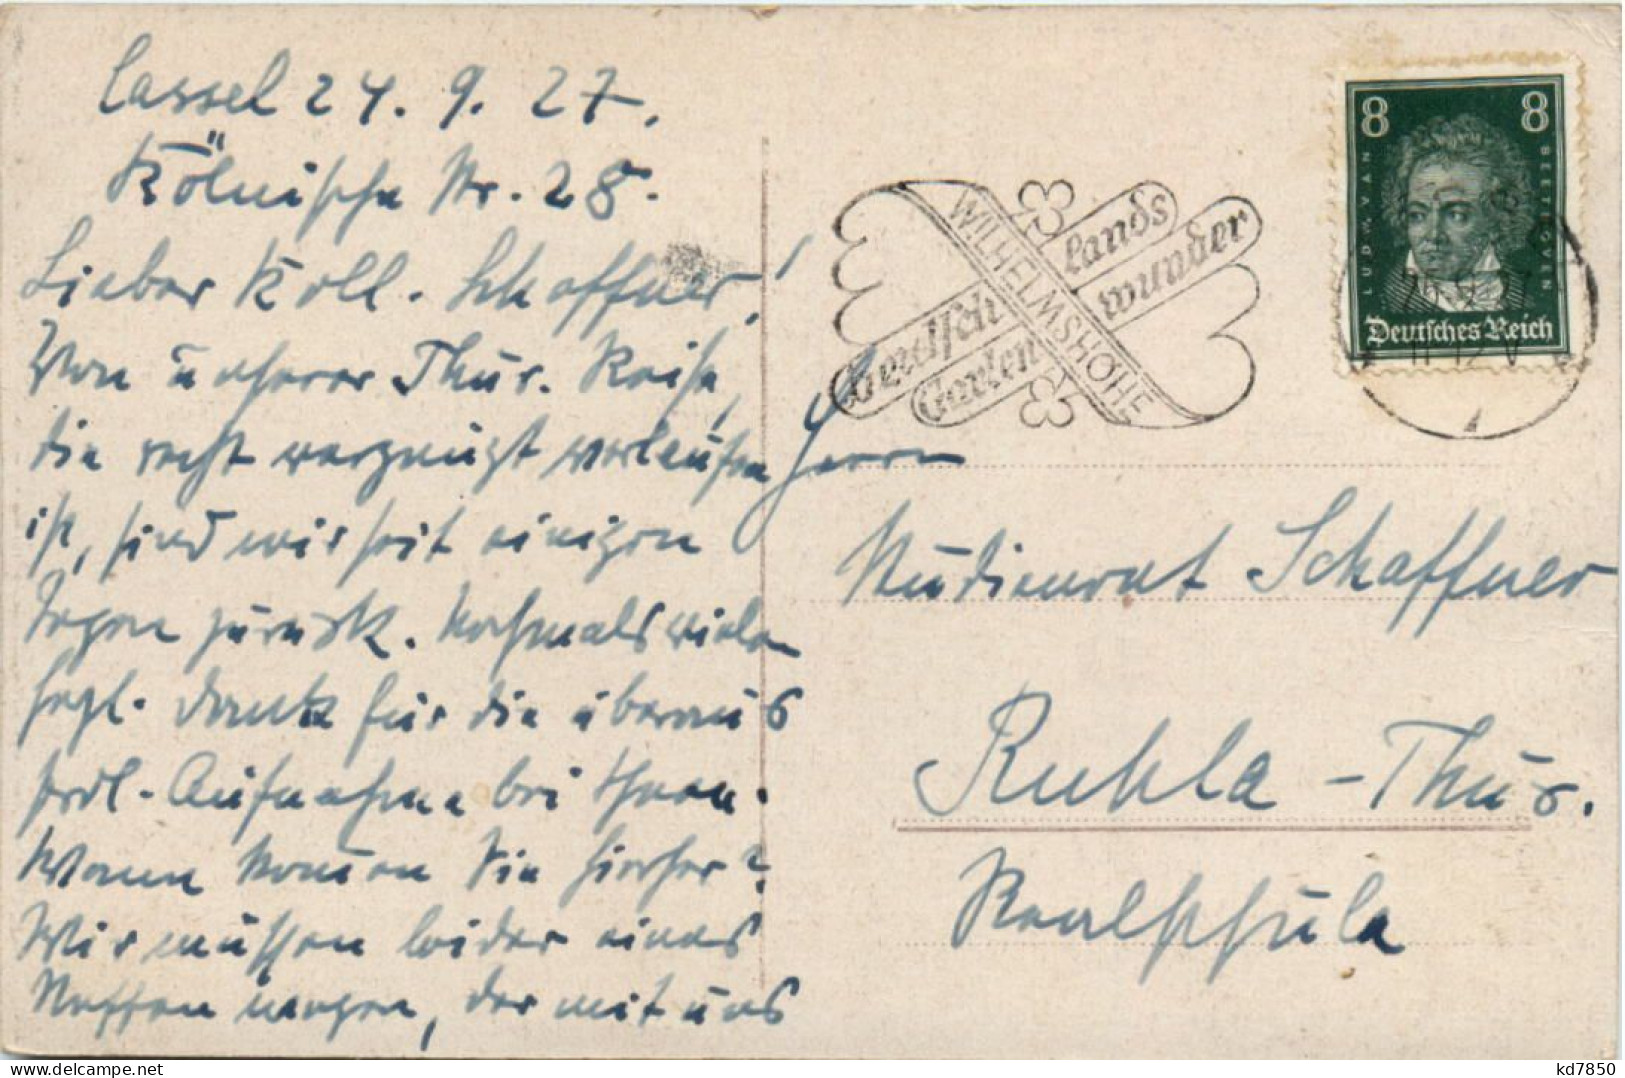 Cassel 24. 9. 27.
Kölnische Nr. 28.
Lieber Koll. Schaffner!
Von unserer Thür. Reise,
die recht vergnügt verlaufen
ist, sind wir seit einigen
Tagen zurück. Nochmals vielen
hzgl. Dank für die überaus
frdl. Aufnahme bei Ihnen.
Wann kommen Sie hierher?
Wir müssen leider eines
Neffen wegen, der mit uns
WILHELMSHÖHE
Deutschlands
Gartenwunder
8 8
LUDW. VAN BEETHOVEN
Deutsches Reich
25.9.27
11-12 V
Herrn
Studienrat Schaffner
Ruhla - Thür.
Realschule
kd7850